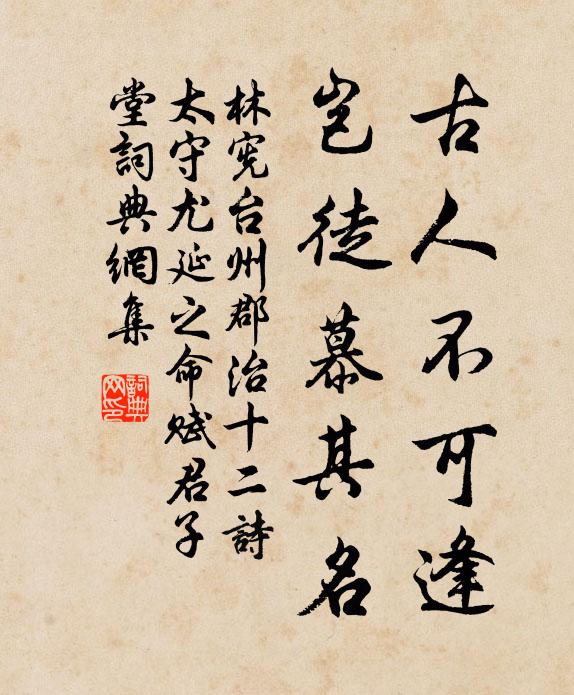 古人不可逢
豈徒慕其名
林宪台州郡治十二詩
太守尤延之命赋君子
堂詞典網集
詞典
网印